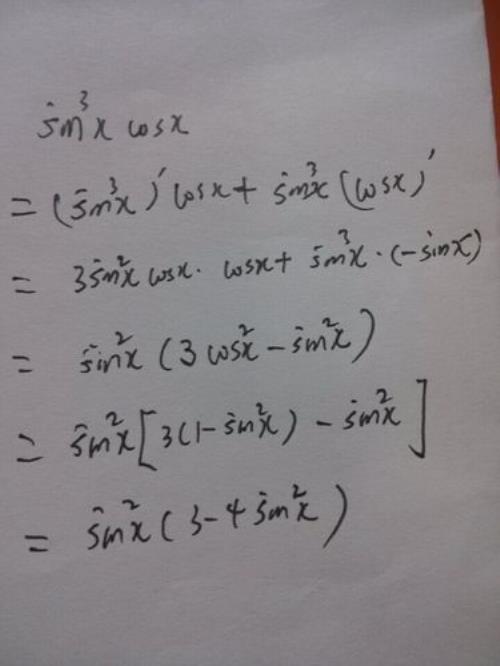 sin³x cosx
= (sin³x)′cosx + sin³x (cosx)′
= 3sin²x cosx · cosx + sin³x · (-sinx)
= sin²x (3cos²x - sin²x)
= sin²x[3(1-sin²x) - sin²x]
= sin²x (3-4sin²x)